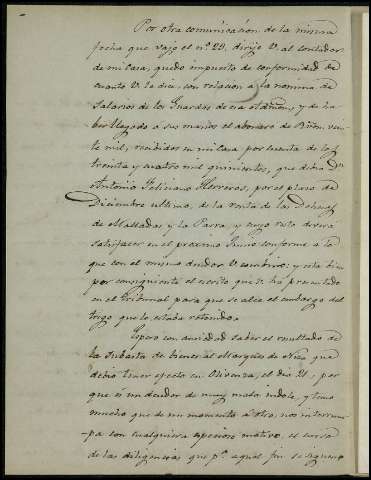 Por otra comunicación de la misma
fecha que vajo el nº 29, dirije V. al contador
de mi casa, quedo impuesto de conformidad de
cuanto V. le dia, con relacion a la nomina de
Salarios de los Guardas de esa
ber llegado a sus manos el abonaré de Rvon. vein
te mil, recividos en mi casa por cuenta de los
treinta y cuatro mil quinientos, que devia Dn
Antonio Feliciano Herreros, por el plazo de
Diciembre ultimo, de la venta de las Dehesas
de Malladas y la Parra, y cuyo resto deverá
satisfacer en el próximo Junio conforme a lo
que con el mismo deudor V. combino: y esta bien
por consiguiente el escrito que V. ha presentado
en el Tribunal para que se alce el embargo del
trigo que le estaba retenido.
Espero con ansiedad saber el resultado de
la Subasta de bienes al Marques de que
debio tener efecto en Olivenza, el dia 21, por
que es un deudor de muy mala indole, y temo
mucho que de un momento a otro, nos interrum
pa con cualquiera especioso motivo, el curso
de las diligencias que pr. aquel fin se siguen